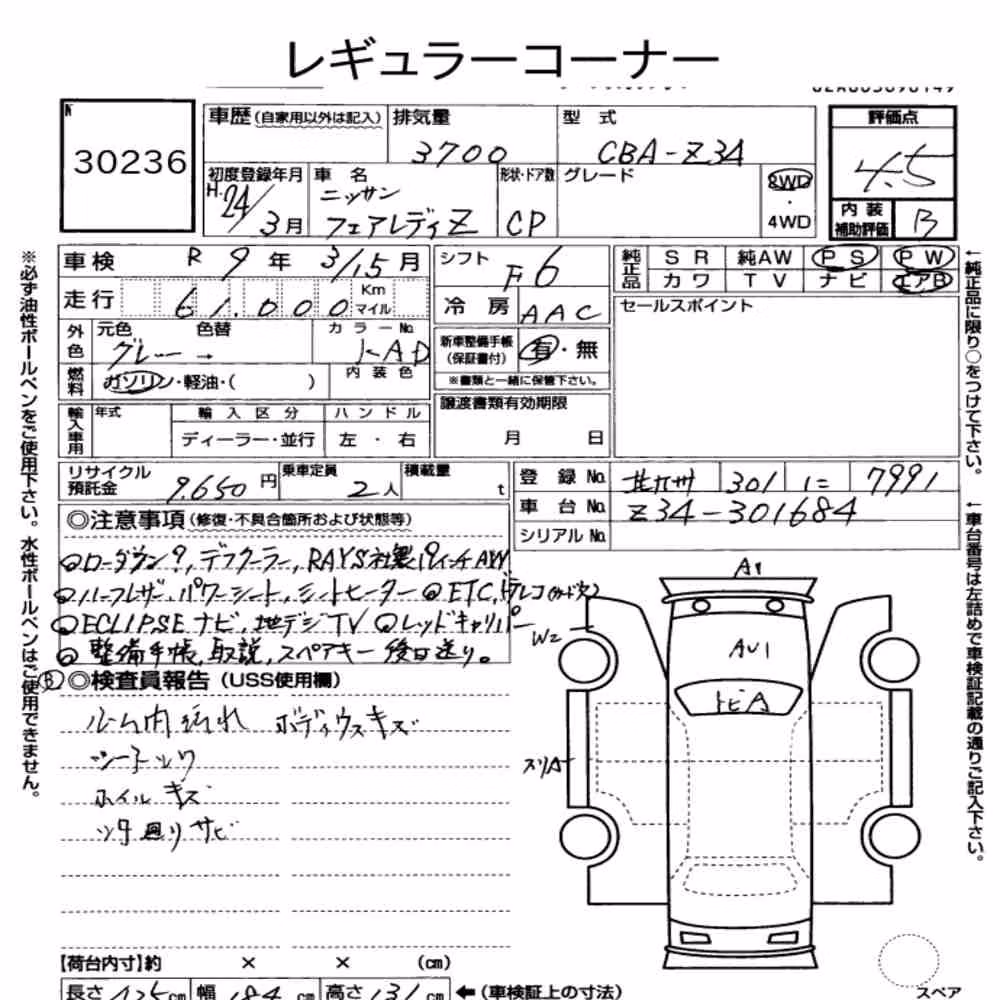 レギュラーコーナー
30236
車歴(自家用以外は記入) 排気量 型式 評価点
3700 CBA-Z34 4.5
初度登録年月 車名 形状・ドア数 グレード 2WD
・
4WD
H.24/3月 ニッサン
フェアレディZ CP
内装
補助評価 B
車検 R9年 3/15月 シフト F6
純正品 SR 純AW PS PW
カワ TV ナビ エアB
走行 61,000 Km
マイル 冷房 AAC
セールスポイント
外色 元色 色替 カラーNo.
グレー → KAD
新車整備手帳
(保証書付) 有・無
※書類と一緒に保管下さい。
燃料 ガソリン・軽油・( ) 内装色
輸入車用 年式 輸入区分 ハンドル
ディーラー・並行 左・右
譲渡書類有効期限
月 日
リサイクル
預託金 9,650円 乗車定員 2人 積載量 t
登録No. 北九州 301 に 7991
車台No. Z34-301684
シリアルNo.
◎注意事項(修復・不具合箇所および状態等)
◎ローダウン?, デフクーラー, RAYS社製19インチAW
◎ハーフレザー, パワーシート, シートヒーター ◎ETC, ドラレコ(カード欠)
◎ECLIPSEナビ, 地デジTV ◎レッドキャリパー
◎整備手帳, 取説, スペアキー 後日送り。
Ⓑ ◎検査員報告(USS使用欄)
ルーム内汚れ ボディウスキズ
シートシワ
ホイルキズ
下廻りサビ
A1
W2
AU1
トビA
スリA
【荷台内寸】約 × × (cm)
長さ 425cm 幅 184cm 高さ 131cm ←(車検証上の寸法)
スペア
※必ず油性ボールペンをご使用下さい。水性ボールペンはご使用できません。
←純正品に限り○をつけて下さい。
←車台番号は左詰めで車検証記載の通りご記入下さい。